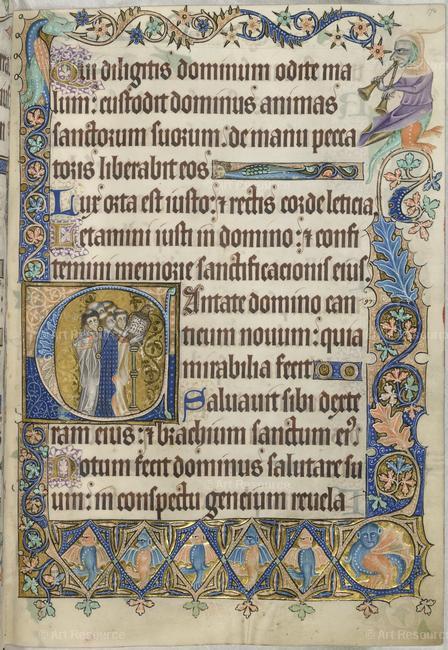 Qui diligitis dominum odite ma
lum: custodit dominus animas
sanctorum suorum: de manu pecca
toris liberabit eos
Lux orta est iusto: ⁊ rectis corde leticia.
Letamini iusti in domino: ⁊ confi
temini memorie sanctificacionis eius.
CAntate domino can
ticum nouum: quia
mirabilia fecit
Saluauit sibi dexte
ram eius: ⁊ brachium sanctum eiꝰ.
Notum fecit dominus salutare su
um: in conspectu gencium reuela
© Art Resource
© Art Resource